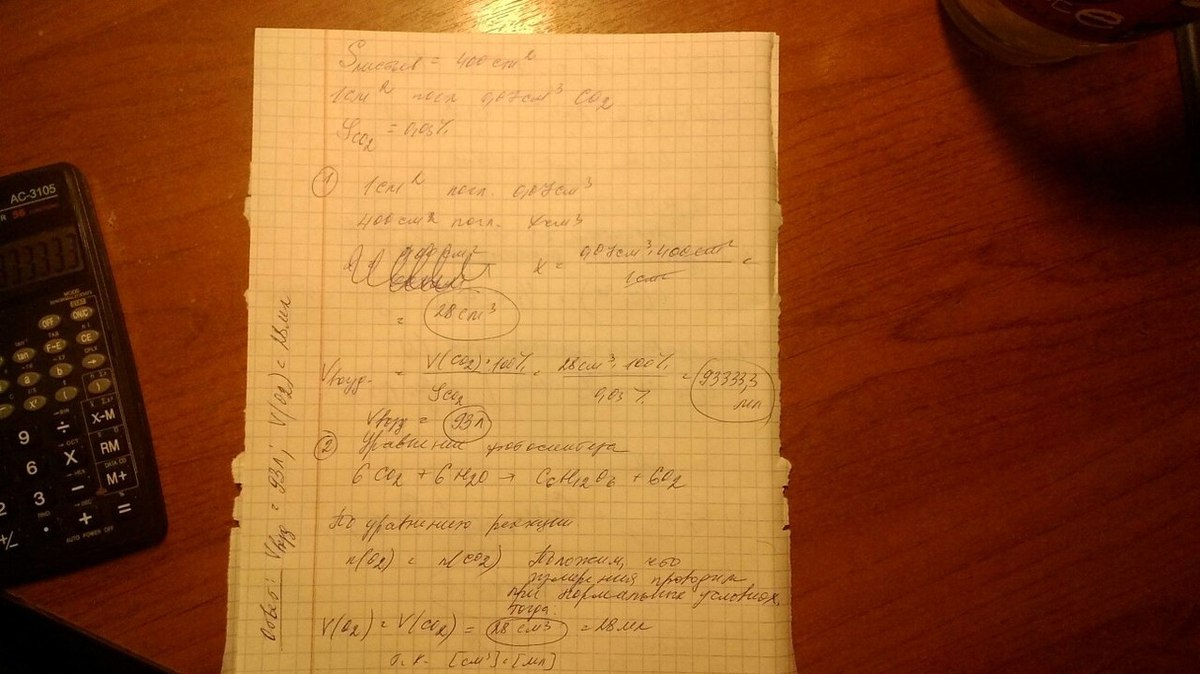 Sлистьев = 400 см²
1 см² погл 0,07 см³ CO₂
φCO₂ = 0,03%
① 1 см² погл. 0,07 см³
400 см² погл. x см³
x = 0,07 см³·400 см² / 1 см² =
= 28 см³
Vвозд. = V(CO₂)·100% / φCO₂ = 28 см³·100% / 0,03% = 93333,3 мл
Vвозд = 93 л
② Уравнение фотосинтеза
6CO₂ + 6H₂O → C₆H₁₂O₆ + 6O₂
По уравнению реакции
n(O₂) = n(CO₂) Положим, что
измерения проводили
при нормальных условиях,
тогда
V(O₂) = V(CO₂) = 28 см³ = 28 мл
т.к. [см³] = [мл]
Ответ: Vвозд = 93 л; V(O₂) = 28 мл
AC-3105
OFF
ON/C
tan
F-E
CE
a
b
X-M
9
÷
RM
6
X
M+
3
−
2
0
.
+
=
+/−
AUTO POWER OFF